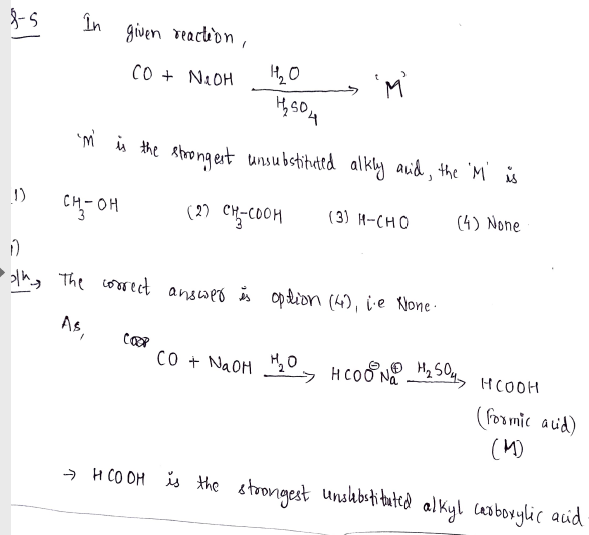 Q-5 In given reaction,
CO + NaOH H₂O / H₂SO₄ → 'M'
'M' is the strongest unsubstituted alkly acid, the 'M' is
1) CH₃-OH (2) CH₃-COOH (3) H-CHO (4) None
→ The correct answer is option (4), i.e None.
As,
CO + NaOH H₂O → HCOO⊖ Na⊕ H₂SO₄ → HCOOH
(formic acid)
(M)
→ HCOOH is the strongest unsubstituted alkyl carboxylic acid